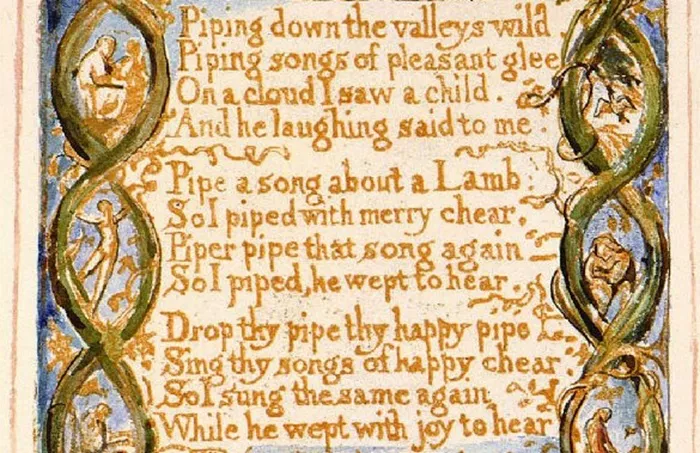 Piping down the valleys wild
Piping songs of pleasant glee
On a cloud I saw a child.
And he laughing said to me.
Pipe a song about a Lamb:
So I piped with merry chear,
Piper pipe that song again—
So I piped, he wept to hear.
Drop thy pipe thy happy pipe
Sing thy songs of happy chear
So I sung the same again
While he wept with joy to hear